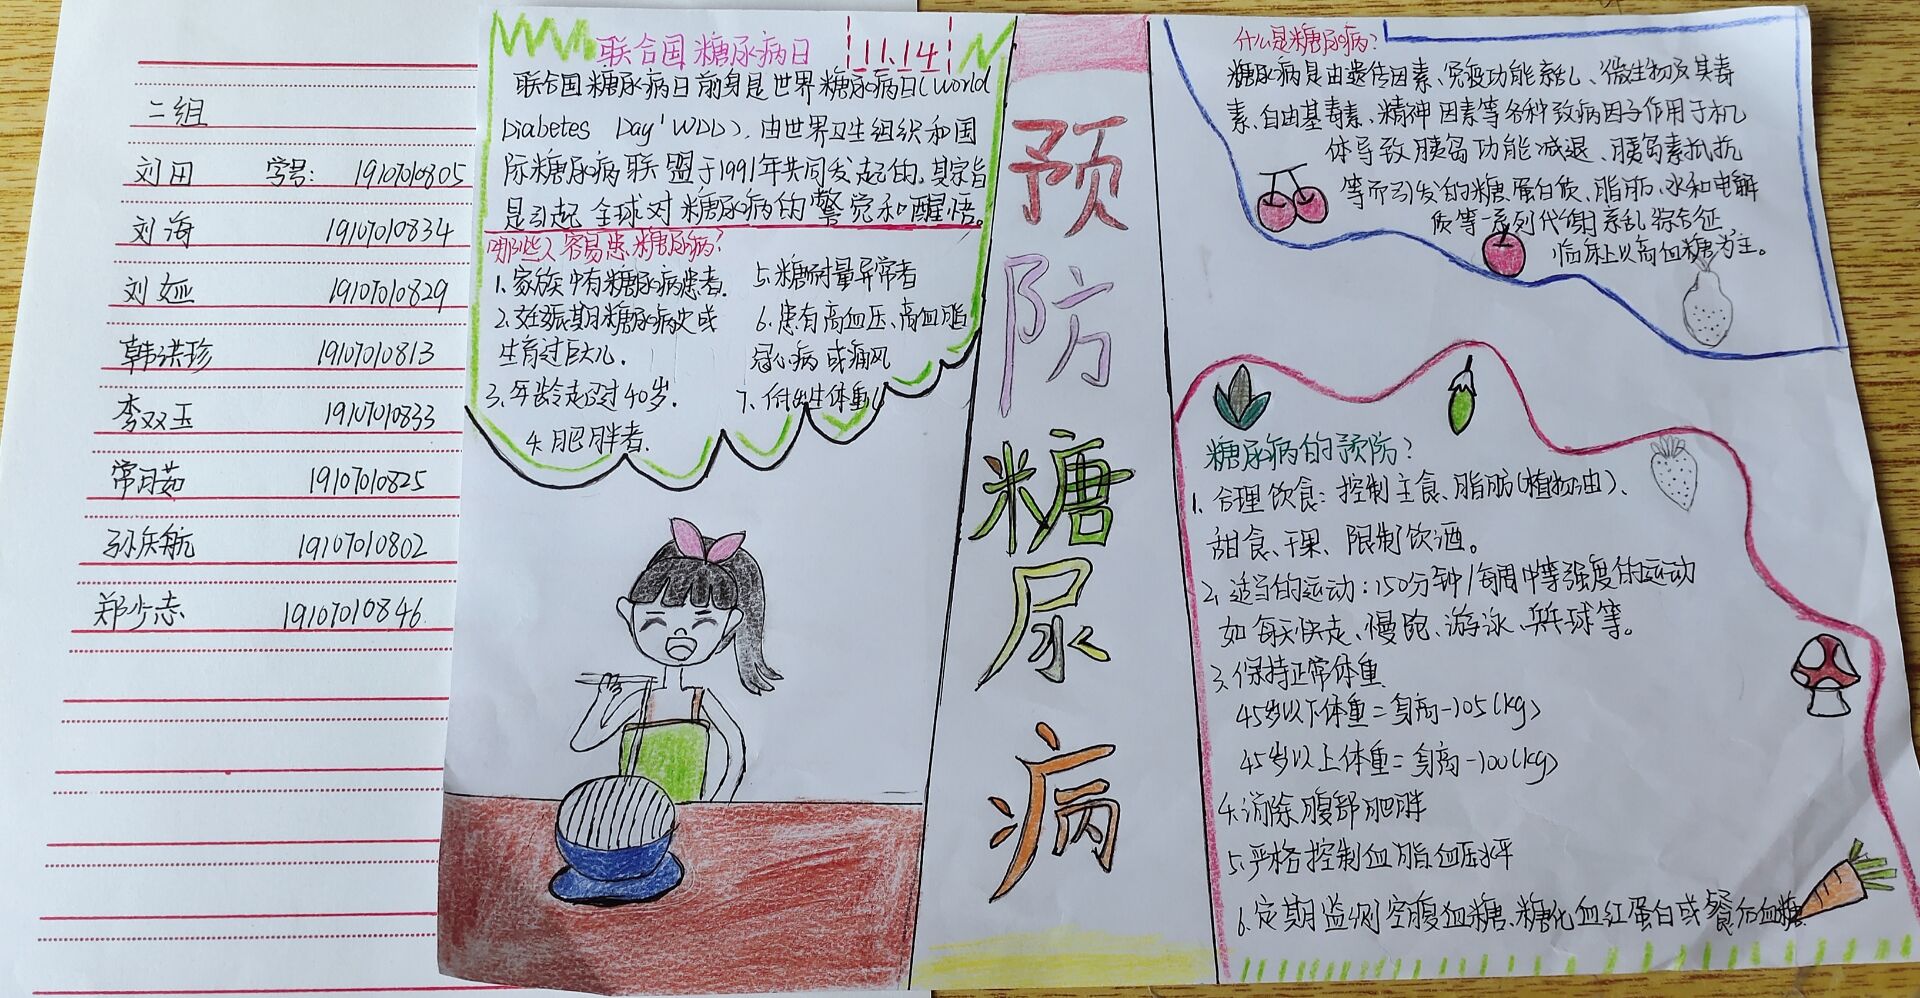 二组
刘田 学号: 19107010805
刘海 19107010834
刘娅 19107010829
韩洪珍 19107010813
李双玉 19107010833
常月茹 19107010825
孙庆航 19107010802
郑少志 19107010846
联合国糖尿病日 11.14
联合国糖尿病日前身是世界糖尿病日(World
Diabetes Day'WDD),由世界卫生组织和国
际糖尿病联盟于1991年共同发起的,其宗旨
是引起全球对糖尿病的警觉和醒悟。
哪些人容易患糖尿病?
1.家族中有糖尿病患者.
2.妊娠期糖尿病史或
生育过巨大儿.
3.年龄超过40岁.
4.肥胖者.
5.糖耐量异常者
6.患有高血压、高血脂
冠心病或痛风
7.出生体重
预防糖尿病
什么是糖尿病?
糖尿病是由遗传因素、免疫功能紊乱、微生物及其毒
素、自由基毒素、精神因素等各种致病因子作用于机
体导致胰岛功能减退、胰岛素抵抗
等而引发的糖、蛋白质、脂肪、水和电解
质等一系列代谢紊乱综合征
临床上以高血糖为主。
糖尿病的预防?
1.合理饮食:控制主食、脂肪(植物油)、
甜食、干果、限制饮酒。
2.适当的运动:150分钟/每周中等强度的运动
如每天快走、慢跑、游泳、乒乓球等。
3.保持正常体重
45岁以下体重=身高-105(kg)
45岁以上体重=身高-100(kg)
4.消除腹部肥胖
5.严格控制血脂血压水平
6.定期监测空腹血糖、糖化血红蛋白或餐后血糖